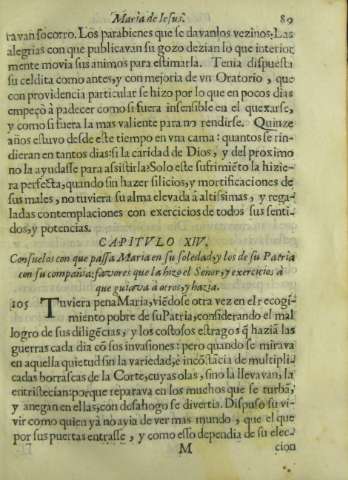 Maria de Iesus. 89
ravan socorro. Los parabienes que se davan los vezinos; Las
alegrias con que publicavan su gozo dezian lo que interior
mente movia sus animos para estimarla. Tenia dispuesta
su celdita como antes, y con mejoria de vn Oratorio, que
con providencia particular se hizo por lo que en pocos dias
empeçò à padecer como si fuera insensible en el quexarse,
y como si fuera la mas valiente para no rendirse. Quinze
años estuvo desde este tiempo en vna cama: quantos se rin-
dieran en tantos dias: si la caridad de Dios, y del proximo
no la ayudasse para assistirla? Solo este sufrimiẽto la hizie-
ra perfecta, quando sin hazer silicios, y mortificaciones de
sus males, no tuviera su alma elevada à altissimas, y rega-
ladas contemplaciones con exercicios de todos sus senti-
dos, y potencias.
CAPITVLO XIV.
Consuelos con que passa Maria en su soledad, y los de su Patria
con su compañia: favores que la hizo el Señor, y exercicios à
que guiava à otros, y hazia.
105 Tuviera pena Maria, viẽdose otra vez en el recogi-
miento pobre de su Patria, considerando el mal
logro de sus diligẽcias, y los costosos estragos q̃ haziã las
guerras cada dia cõ sus invasiones: pero quando se mirava
en aquella quietud sin la variedad, è incõstãcia de multipli-
cadas borrascas de la Corte, cuyas olas, sino la llevan, la
entristecian: porque reparava en los muchos que se turbã,
y anegan en ellas, con desahogo se divertia. Dispuso su vi-
vir como quien yà no avia de ver mas mundo, que el que
por sus puertas entrasse, y como esso dependia de su elec-
M cion